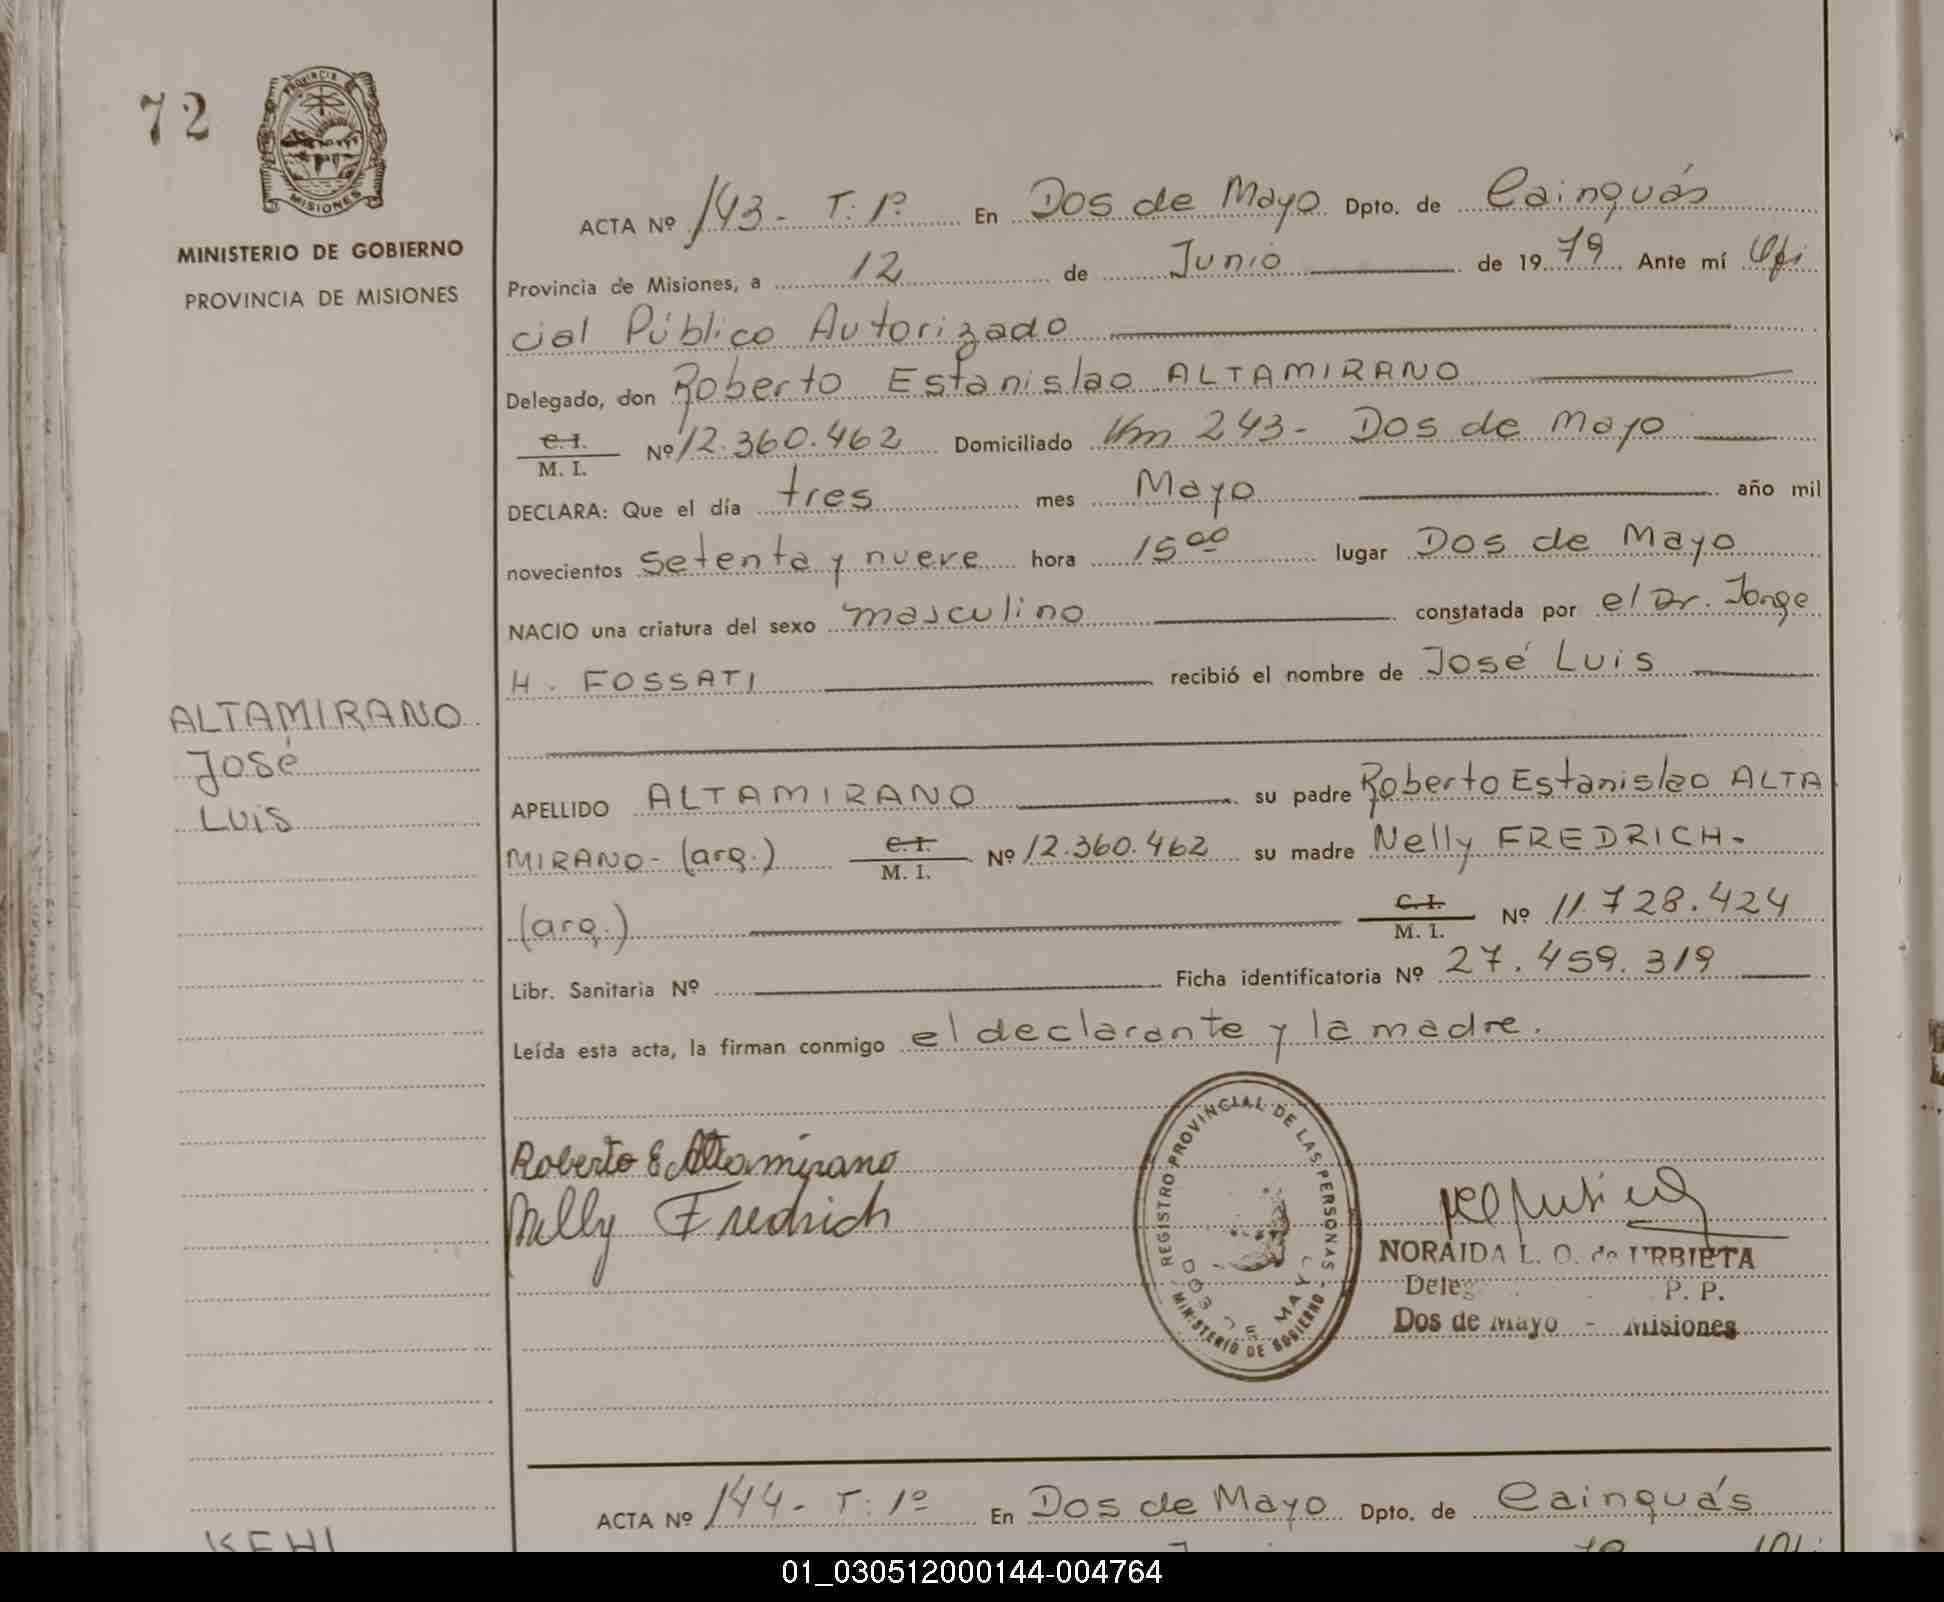 72
PROVINCIA
MISIONES
MINISTERIO DE GOBIERNO
PROVINCIA DE MISIONES
ACTA Nº 143- T: 1º En Dos de Mayo Dpto. de Cainguás
Provincia de Misiones, a 12 de Junio de 1979 Ante mí Ofi
cial Público Autorizado
Delegado, don Roberto Estanislao ALTAMIRANO
C. I.
M. I. Nº 12.360.462 Domiciliado Km 243- Dos de Mayo
DECLARA: Que el día tres mes Mayo año mil
novecientos setenta y nueve hora 15 00 lugar Dos de Mayo
NACIO una criatura del sexo masculino constatada por el Dr. Jorge
H. FOSSATI recibió el nombre de José Luis
ALTAMIRANO
José
Luis
APELLIDO ALTAMIRANO su padre Roberto Estanislao ALTA
MIRANO- (arg.) C. I. M. I. Nº 12.360.462 su madre Nelly FREDRICH-
(arg.) C. I. M. I. Nº 11.728.424
Libr. Sanitaria Nº Ficha identificatoria Nº 27.459.319
Leída esta acta, la firman conmigo el declarante y la madre.
Roberto E Altamirano
Nelly Fredrich
REGISTRO PROVINCIAL DE LAS PERSONAS
DOS DE MAYO
MINISTERIO DE GOBIERNO
NORAIDA L. O. de URBIETA
P. P.
Dos de Mayo - Misiones
ACTA Nº 144- T: 1º En Dos de Mayo Dpto. de Cainguás
01_030512000144-004764